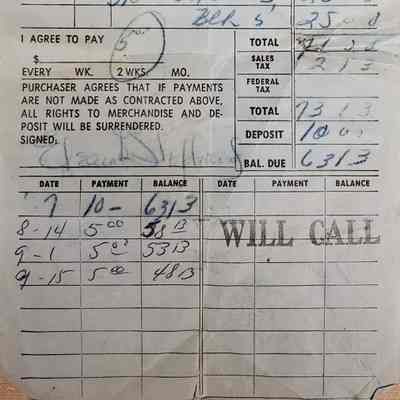 25 00
I AGREE TO PAY 5 00
TOTAL 71 00
$
SALES TAX 2 13
EVERY WK. 2 WKS. MO.
FEDERAL TAX
PURCHASER AGREES THAT IF PAYMENTS
ARE NOT MADE AS CONTRACTED ABOVE,
TOTAL 73 13
ALL RIGHTS TO MERCHANDISE AND DE-
POSIT WILL BE SURRENDERED.
DEPOSIT 10 00
SIGNED,
BAL. DUE 63 13
DATE PAYMENT BALANCE DATE PAYMENT BALANCE
7 10 — 63 13
8-14 5 00 58 13
WILL CALL
9-1 5 00 53 13
9-15 5 00 48 13